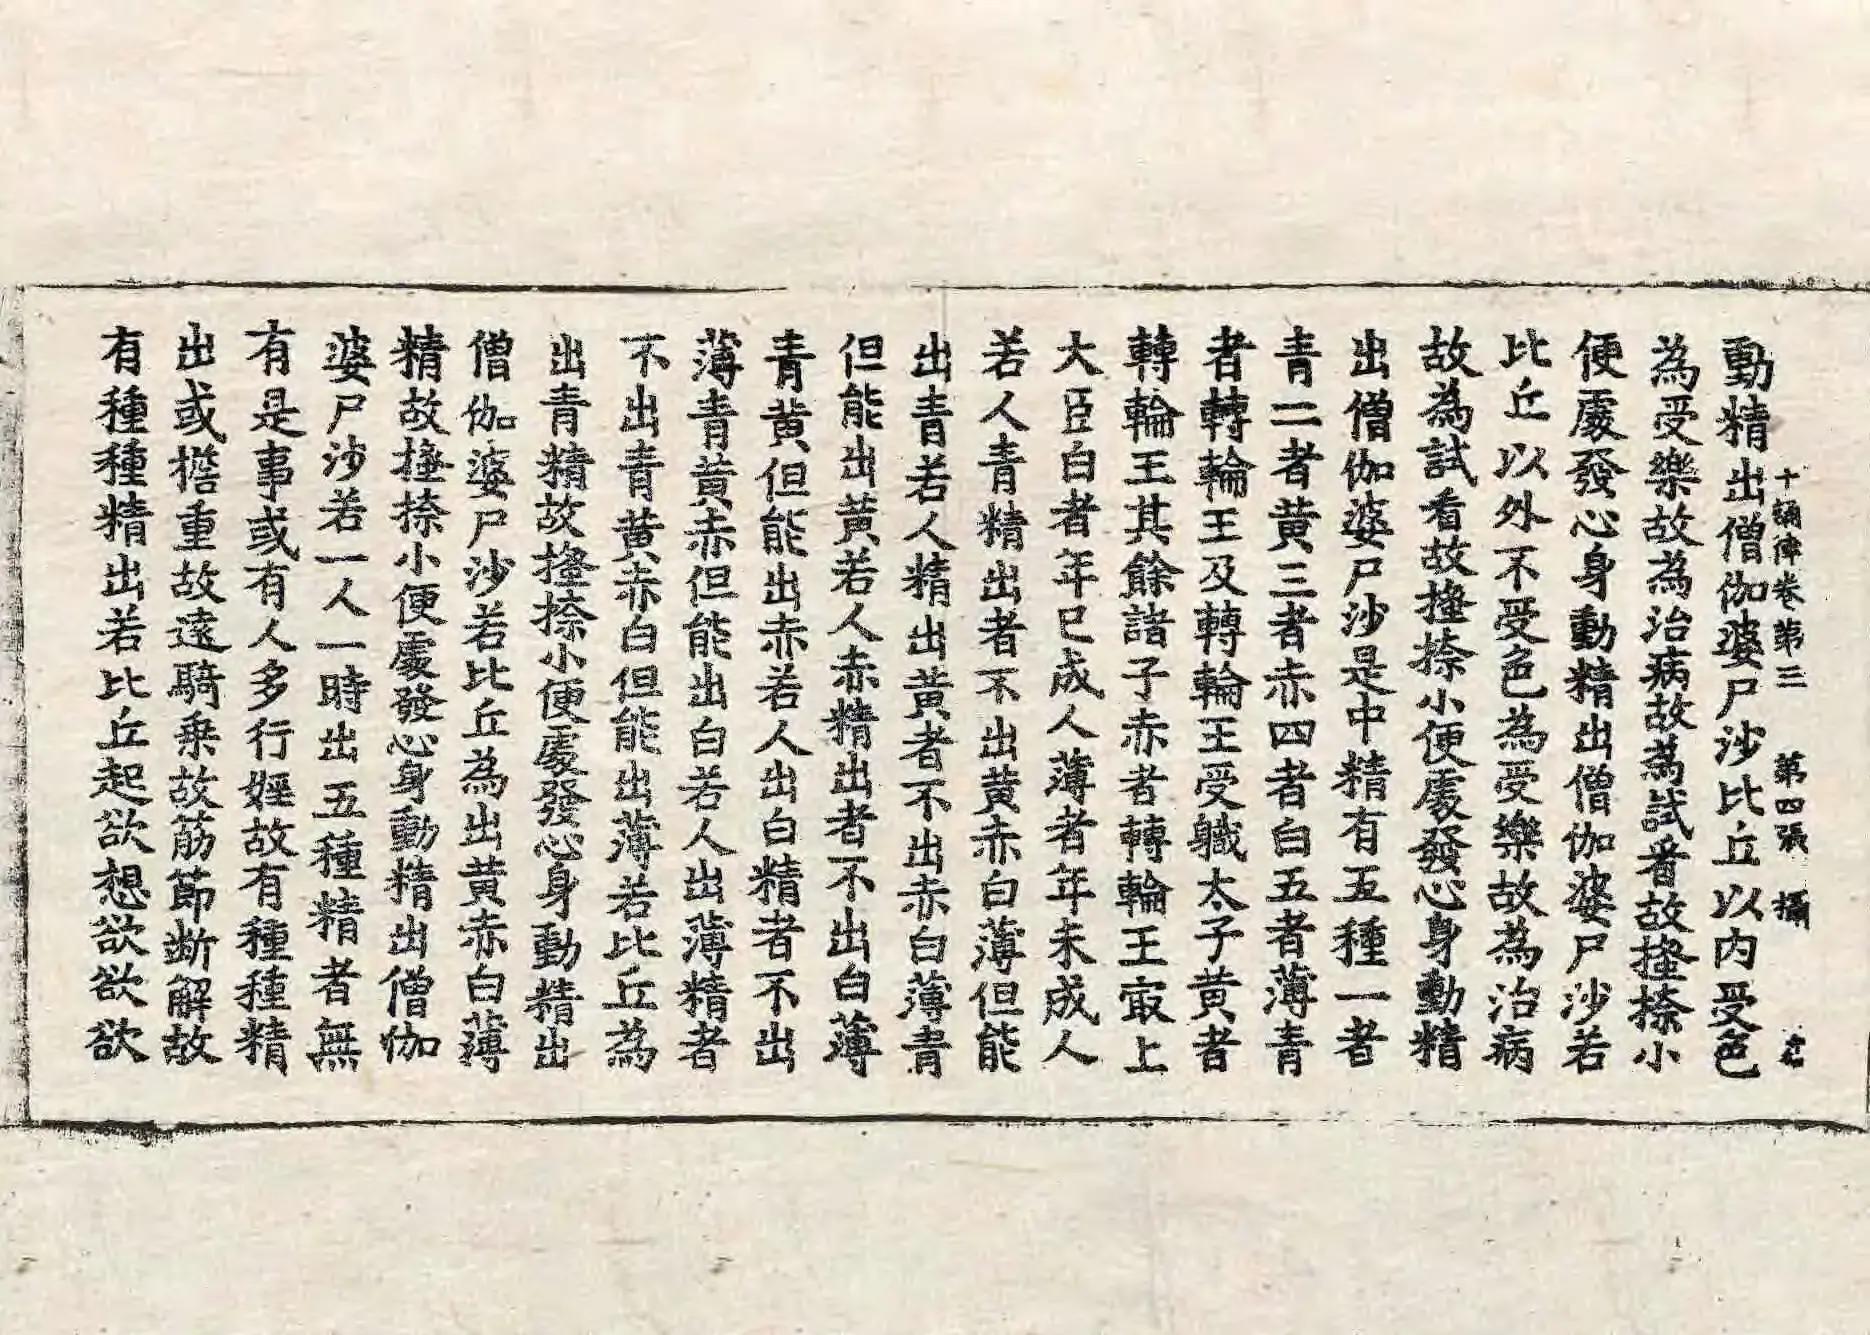 十誦律卷第三 第四張 攝
動精出僧伽婆尸沙比丘以内受色
為受樂故為治病故為試看故搔捺小
便處發心身動精出僧伽婆尸沙若
比丘以外不受色為受樂故為治病
故為試看故搔捺小便處發心身動精
出僧伽婆尸沙是中精有五種一者
青二者黄三者赤四者白五者薄青
者轉輪王及轉輪王受軄太子黄者
轉輪王其餘諸子赤者轉輪王㝡上
大臣白者年已成人薄者年未成人
若人青精出者不出黄赤白薄但能
出青若人精出黄者不出赤白薄青
但能出黄若人赤精出者不出白薄
青黄但能出赤若人出白精者不出
薄青黄赤但能出白若人出薄精者
不出青黄赤白但能出薄若比丘為
出青精故搔捺小便處發心身動精出
僧伽婆尸沙若比丘為出黄赤白薄
精故搔捺小便處發心身動精出僧伽
婆尸沙若一人一時出五種精者無
有是事或有人多行婬故有種種精
出或擔重故遠騎乗故筋節断解故
有種種精出若比丘起欲想欲欲欲